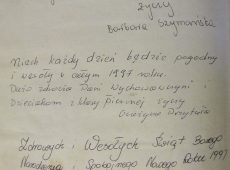 życzy
Barbara Szymańska
Niech każdy dzień będzie pogodny
i wesoły w całym 1997 roku.
Dużo zdrowia Pani Wychowawczyni i
Dzieciakom z klasy pierwszej życzy
Grażyna
Zdrowych i Wesołych Świąt Bożego
Narodzenia i Spokojnego Nowego Roku 1997